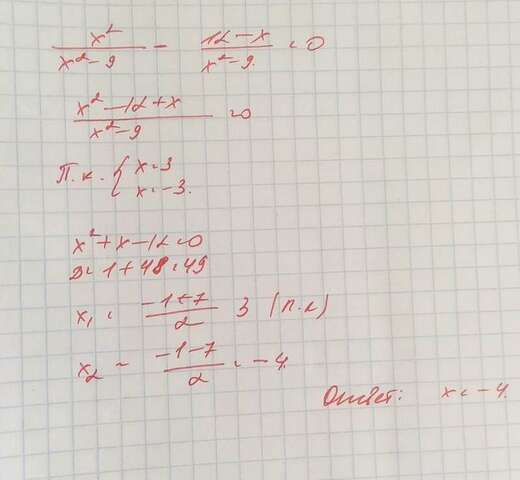 x²/(x²-9) - (12-x)/(x²-9) = 0
(x²-12+x)/(x²-9) = 0
П.к. { x=3
x=-3.
x²+x-12=0
D=1+48=49
x₁ = (-1+7)/2 3 (п.к)
x₂ = (-1-7)/2 = -4.
Ответ: x=-4.